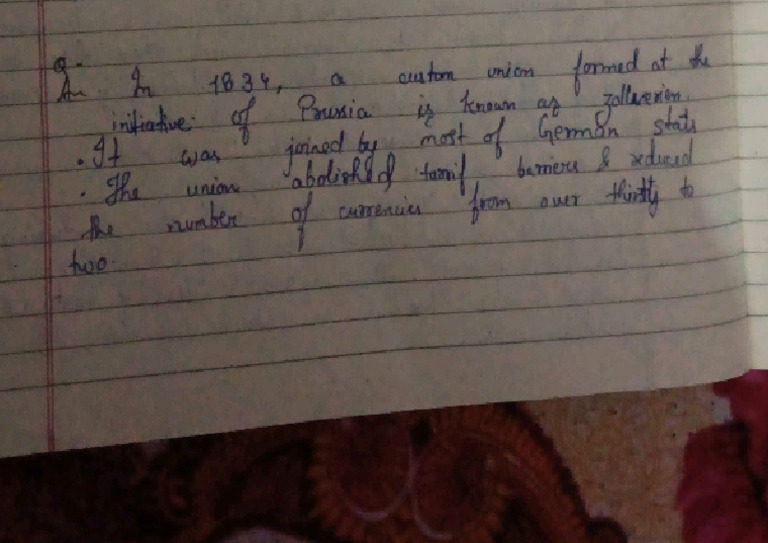 Q.
An In 1834, a custom union formed at the
initiative of Prussia is known as zollverein.
. It was joined by most of German stats
. The union abolished tarrif barriers & reduced
the number of currencies from over thirtly to
two.